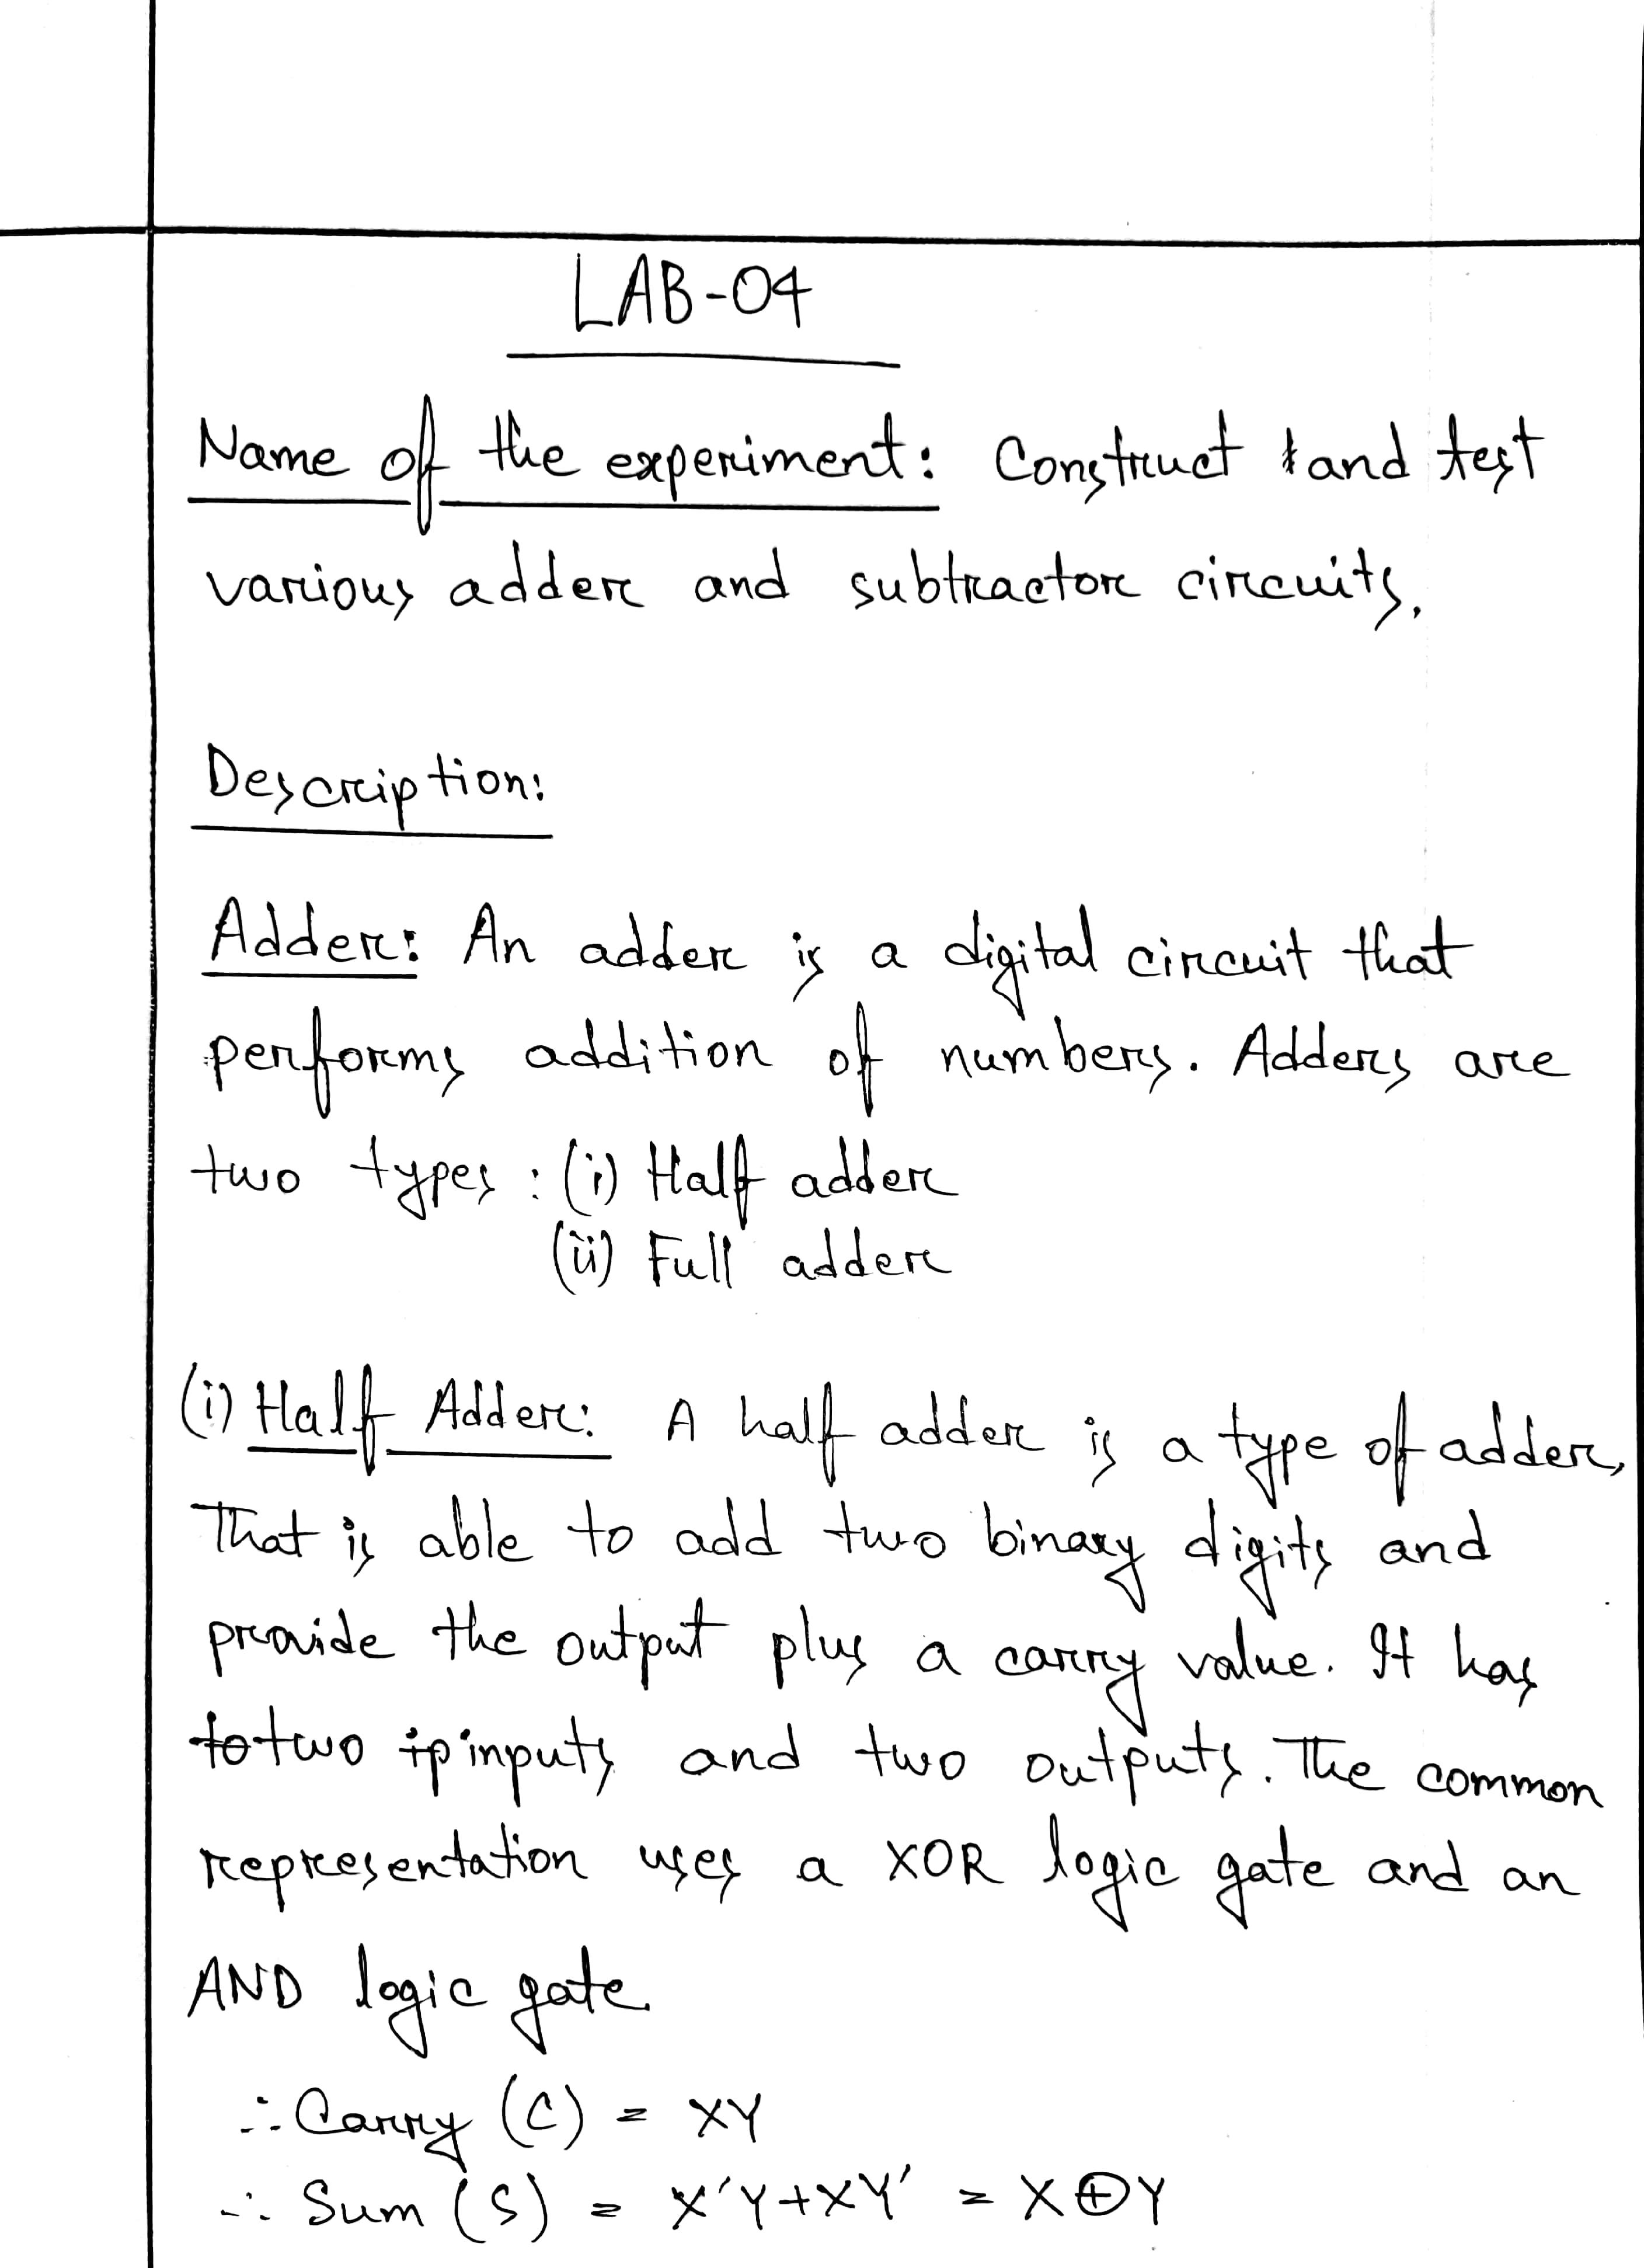 LAB-04
Name of the experiment: Construct and test
various adder and subtractor circuits.
Description:
Adder: An adder is a digital circuit that
performs addition of numbers. Adders are
two types : (i) Half adder
(ii) Full adder
(i) Half Adder: A half adder is a type of adder,
That is able to add two binary digits and
provide the output plus a carry value. It has
two inputs and two outputs. The common
representation uses a XOR logic gate and an
AND logic gate.
∴ Carry (C) = XY
∴ Sum (S) = X'Y+XY' = X⊕Y